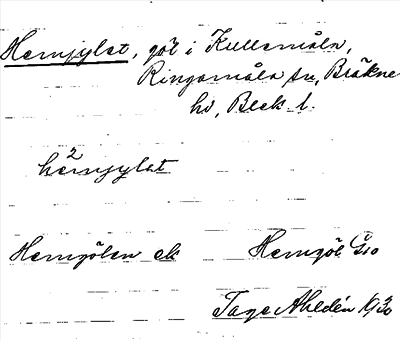 Hemjylet, göl i Kullamåla,
Ringamåla sn, Bräkne
hd, Blek l.
2
hemjylet
Hemgölen ek Hemgöl Go
Tage Ahldén 1930